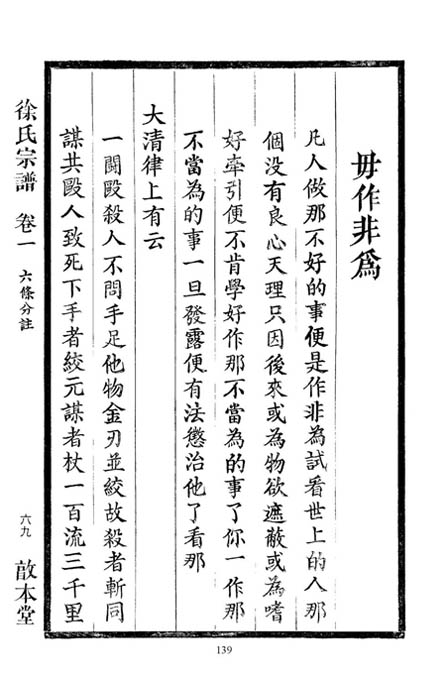 毋作非爲
凡人做那不好的事便是作非為試看世上的人那
個没有良心天理只因後來或為物欲遮蔽或為嗜
好牽引便不肯學好作那不當為的事了你一作那
不當為的事一旦發露便有法懲治他了看那
大清律上有云
一鬪毆殺人不問手足他物金刃並絞故殺者斬同
謀共毆人致死下手者絞元謀者杖一百流三千里
徐氏宗譜 卷一 六條分註 六九 敢本堂
139